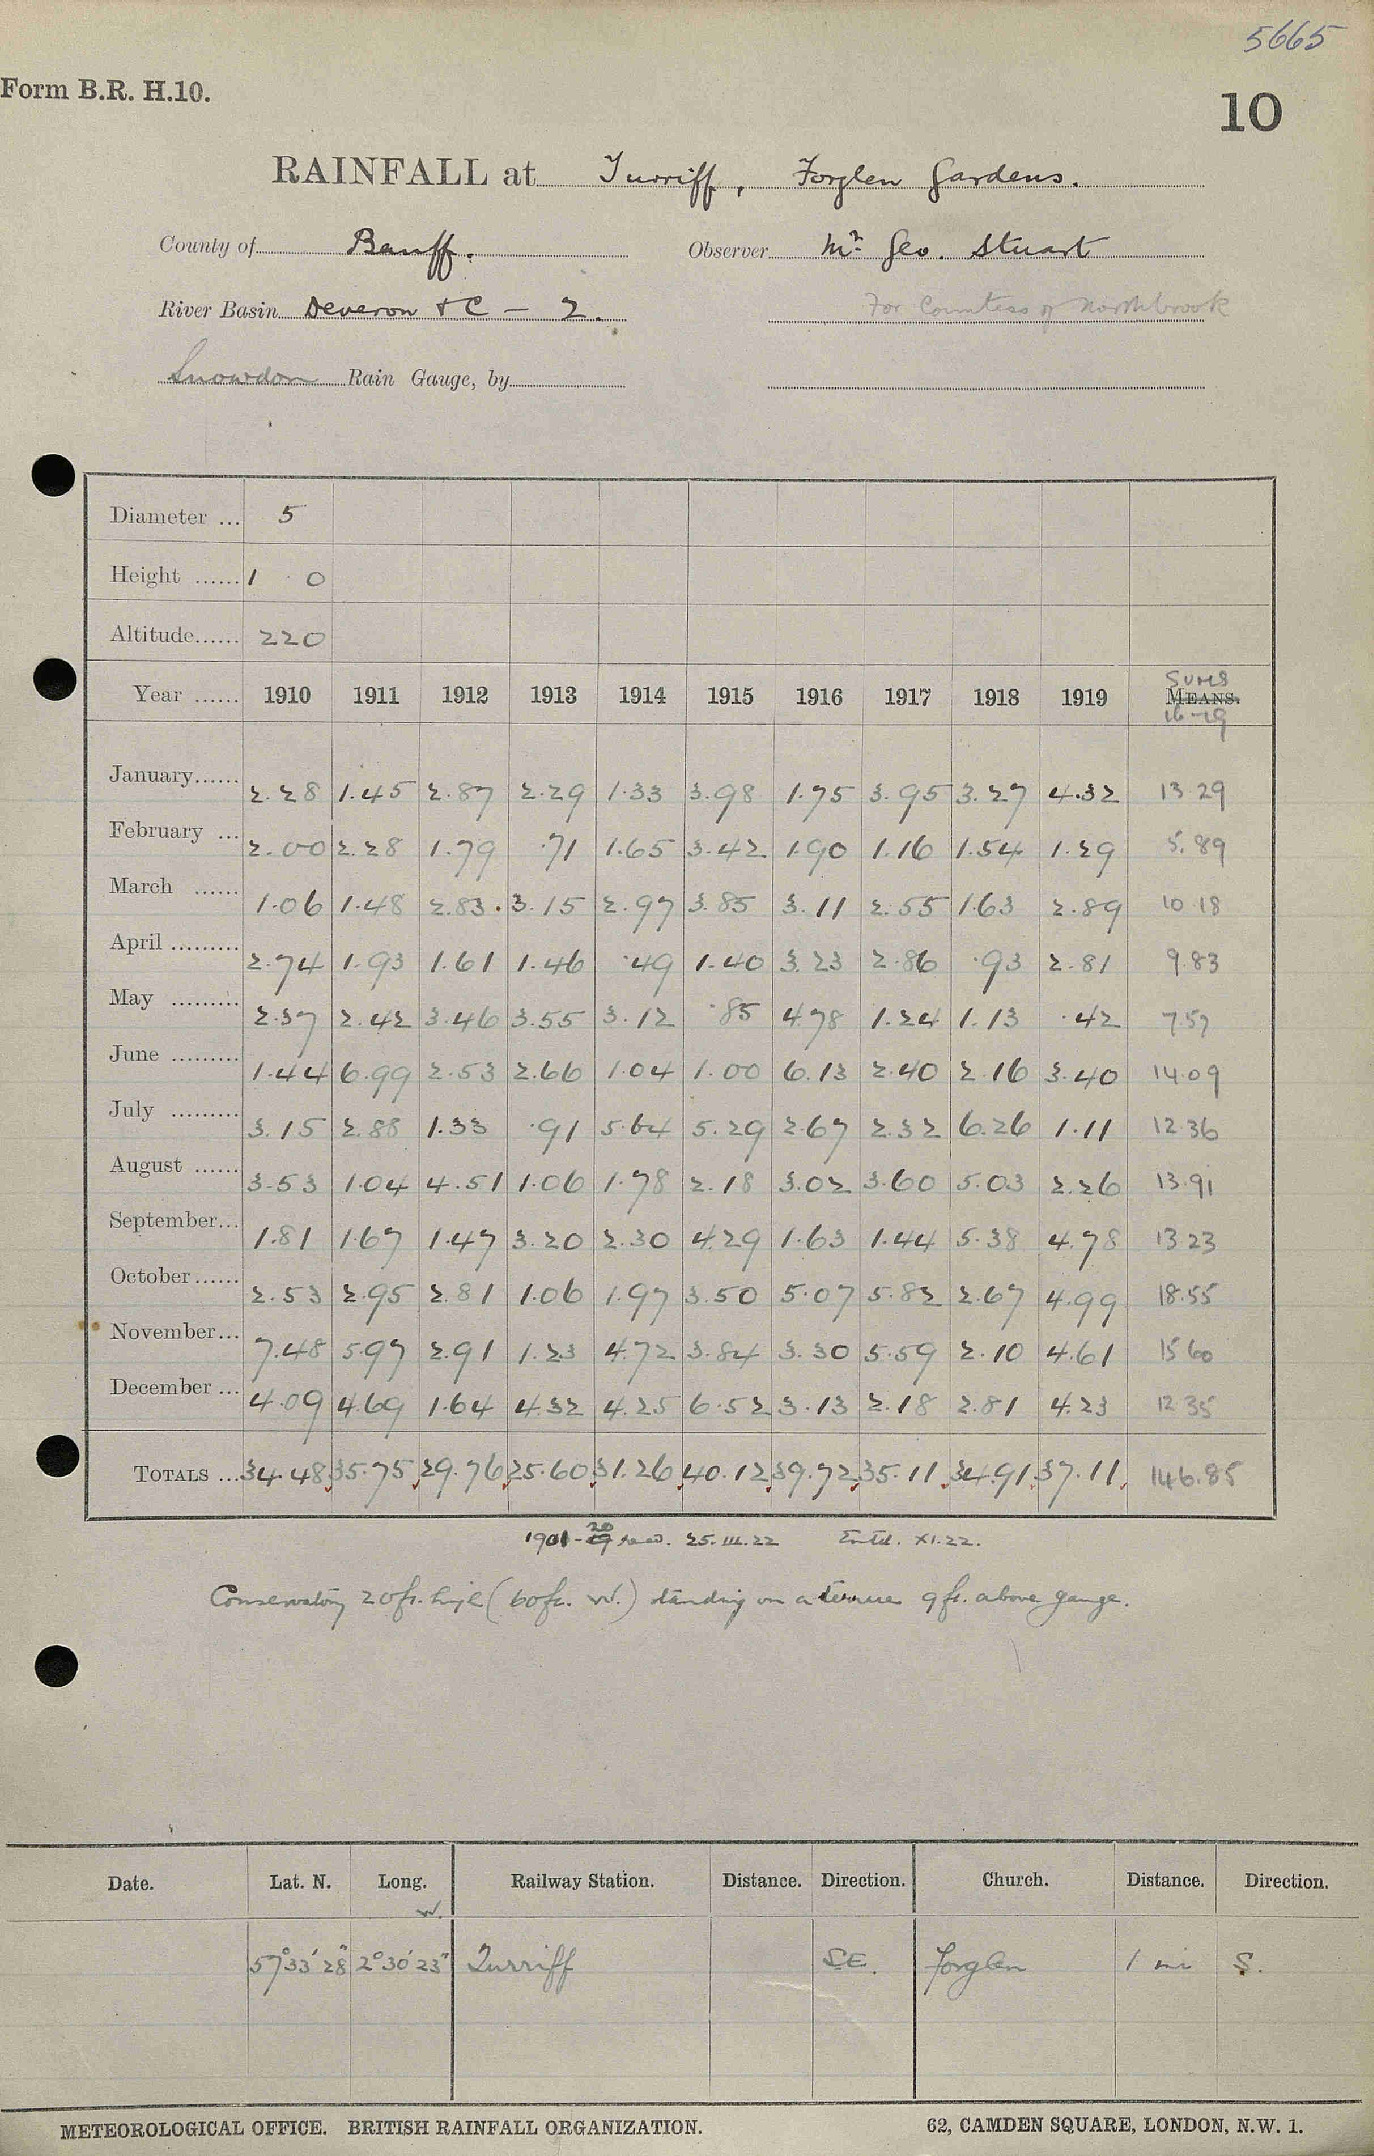 5665
Form B.R. H.10.
10
RAINFALL at Turriff, Forglen Gardens.
County of Banff. Observer Mr. Geo. Stuart
River Basin Deveron & C — 2. For Countess of Northbrook
Snowdon Rain Gauge, by
Diameter ... 5
Height ...... 1 0
Altitude...... 220
Year ...... 1910 1911 1912 1913 1914 1915 1916 1917 1918 1919 SUMS MEANS. 16-19
January...... 2.28 1.45 2.87 2.29 1.33 3.98 1.75 3.95 3.27 4.32 13.29
February ... 2.00 2.28 1.79 .71 1.65 3.42 1.90 1.16 1.54 1.29 5.89
March ...... 1.06 1.48 2.83 3.15 2.97 3.85 3.11 2.55 1.63 2.89 10.18
April ......... 2.74 1.93 1.61 1.46 .49 1.40 3.23 2.86 .93 2.81 9.83
May ......... 2.37 2.42 3.46 3.55 3.12 .85 4.78 1.24 1.13 .42 7.57
June ......... 1.44 6.99 2.53 2.66 1.04 1.00 6.13 2.40 2.16 3.40 14.09
July ......... 3.15 2.88 1.33 .91 5.64 5.29 2.67 2.32 6.26 1.11 12.36
August ...... 3.53 1.04 4.51 1.06 1.78 2.18 3.02 3.60 5.03 2.26 13.91
September... 1.81 1.67 1.47 3.20 2.30 4.29 1.63 1.44 5.38 4.78 13.23
October...... 2.53 2.95 2.81 1.06 1.97 3.50 5.07 5.82 2.67 4.99 18.55
November... 7.48 5.97 2.91 1.23 4.72 3.84 3.30 5.59 2.10 4.61 15.60
December ... 4.09 4.69 1.64 4.32 4.25 6.52 3.13 2.18 2.81 4.23 12.35
TOTALS ... 34.48 35.75 29.76 25.60 31.26 40.12 39.72 35.11 34.91 37.11 146.85
1901-20 25.III.22 Entd. XI.22.
Conservatory 20ft. high (60ft. W.) standing on a terrace 9ft. above gauge.
Date. Lat. N. Long. W. Railway Station. Distance. Direction. Church. Distance. Direction.
57°33'28" 2°30'23" Turriff S.E. Forglen 1 mi S.
METEOROLOGICAL OFFICE. BRITISH RAINFALL ORGANIZATION. 62, CAMDEN SQUARE, LONDON, N.W. 1.